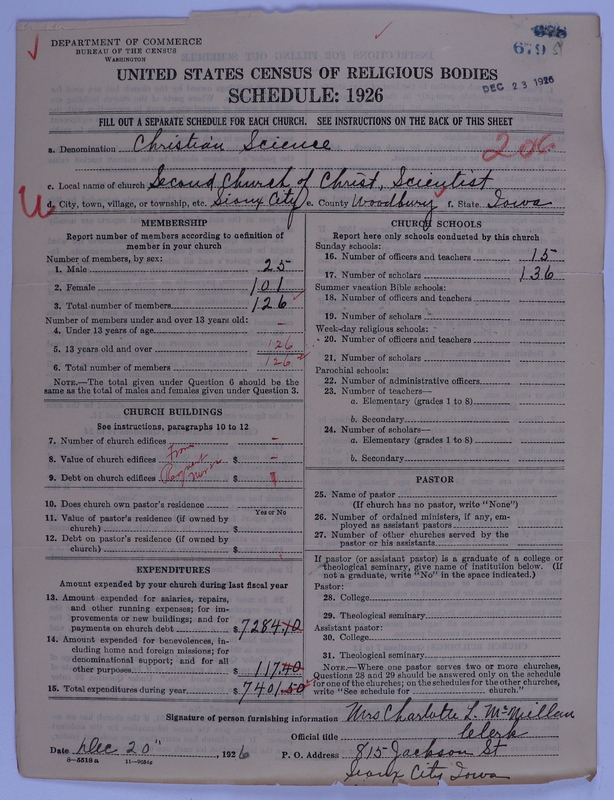 DEPARTMENT OF COMMERCE
BUREAU OF THE CENSUS
WASHINGTON
679
DEC 23 1926
UNITED STATES CENSUS OF RELIGIOUS BODIES
SCHEDULE: 1926
FILL OUT A SEPARATE SCHEDULE FOR EACH CHURCH. SEE INSTRUCTIONS ON THE BACK OF THIS SHEET
a. Denomination Christian Science
c. Local name of church Second Church of Christ, Scientist
d. City, town, village, or township, etc. Sioux City e. County Woodbury f. State Iowa
MEMBERSHIP
Report number of members according to definition of
member in your church
Number of members, by sex:
1. Male 25
2. Female 101
3. Total number of members 126
Number of members under and over 13 years old:
4. Under 13 years of age –
5. 13 years old and over 126
6. Total number of members 126
NOTE.—The total given under Question 6 should be the
same as the total of males and females given under Question 3.
CHURCH BUILDINGS
See instructions, paragraphs 10 to 12
7. Number of church edifices –
8. Value of church edifices $ –
9. Debt on church edifices $
10. Does church own pastor's residence
Yes or No
11. Value of pastor's residence (if owned by
church) $
12. Debt on pastor's residence (if owned by
church) $
EXPENDITURES
Amount expended by your church during last fiscal year
13. Amount expended for salaries, repairs,
and other running expenses; for im-
provements or new buildings; and for
payments on church debt $7284.10
14. Amount expended for benevolences, in-
cluding home and foreign missions; for
denominational support; and for all
other purposes $117.40
15. Total expenditures during year $7401.50
CHURCH SCHOOLS
Report here only schools conducted by this church
Sunday schools:
16. Number of officers and teachers 15
17. Number of scholars 136
Summer vacation Bible schools:
18. Number of officers and teachers
19. Number of scholars
Week-day religious schools:
20. Number of officers and teachers
21. Number of scholars
Parochial schools:
22. Number of administrative officers
23. Number of teachers—
a. Elementary (grades 1 to 8)
b. Secondary
24. Number of scholars—
a. Elementary (grades 1 to 8)
b. Secondary
PASTOR
25. Name of pastor
(If church has no pastor, write "None")
26. Number of ordained ministers, if any, em-
ployed as assistant pastors
27. Number of other churches served by the
pastor or his assistants
If pastor (or assistant pastor) is a graduate of a college or
theological seminary, give name of institution below. (If
not a graduate, write "No" in the space indicated.)
Pastor:
28. College
29. Theological seminary
Assistant pastor:
30. College
31. Theological seminary
NOTE.—Where one pastor serves two or more churches,
Questions 28 and 29 should be answered only on the schedule
for one of the churches; on the schedules for the other churches,
write "See schedule for church."
Signature of person furnishing information Mrs Charlotte L. McMillan
Official title Clerk
Date Dec 20", 1926 P. O. Address 815 Jackson St
8—5518a 11—9034a Sioux City Iowa